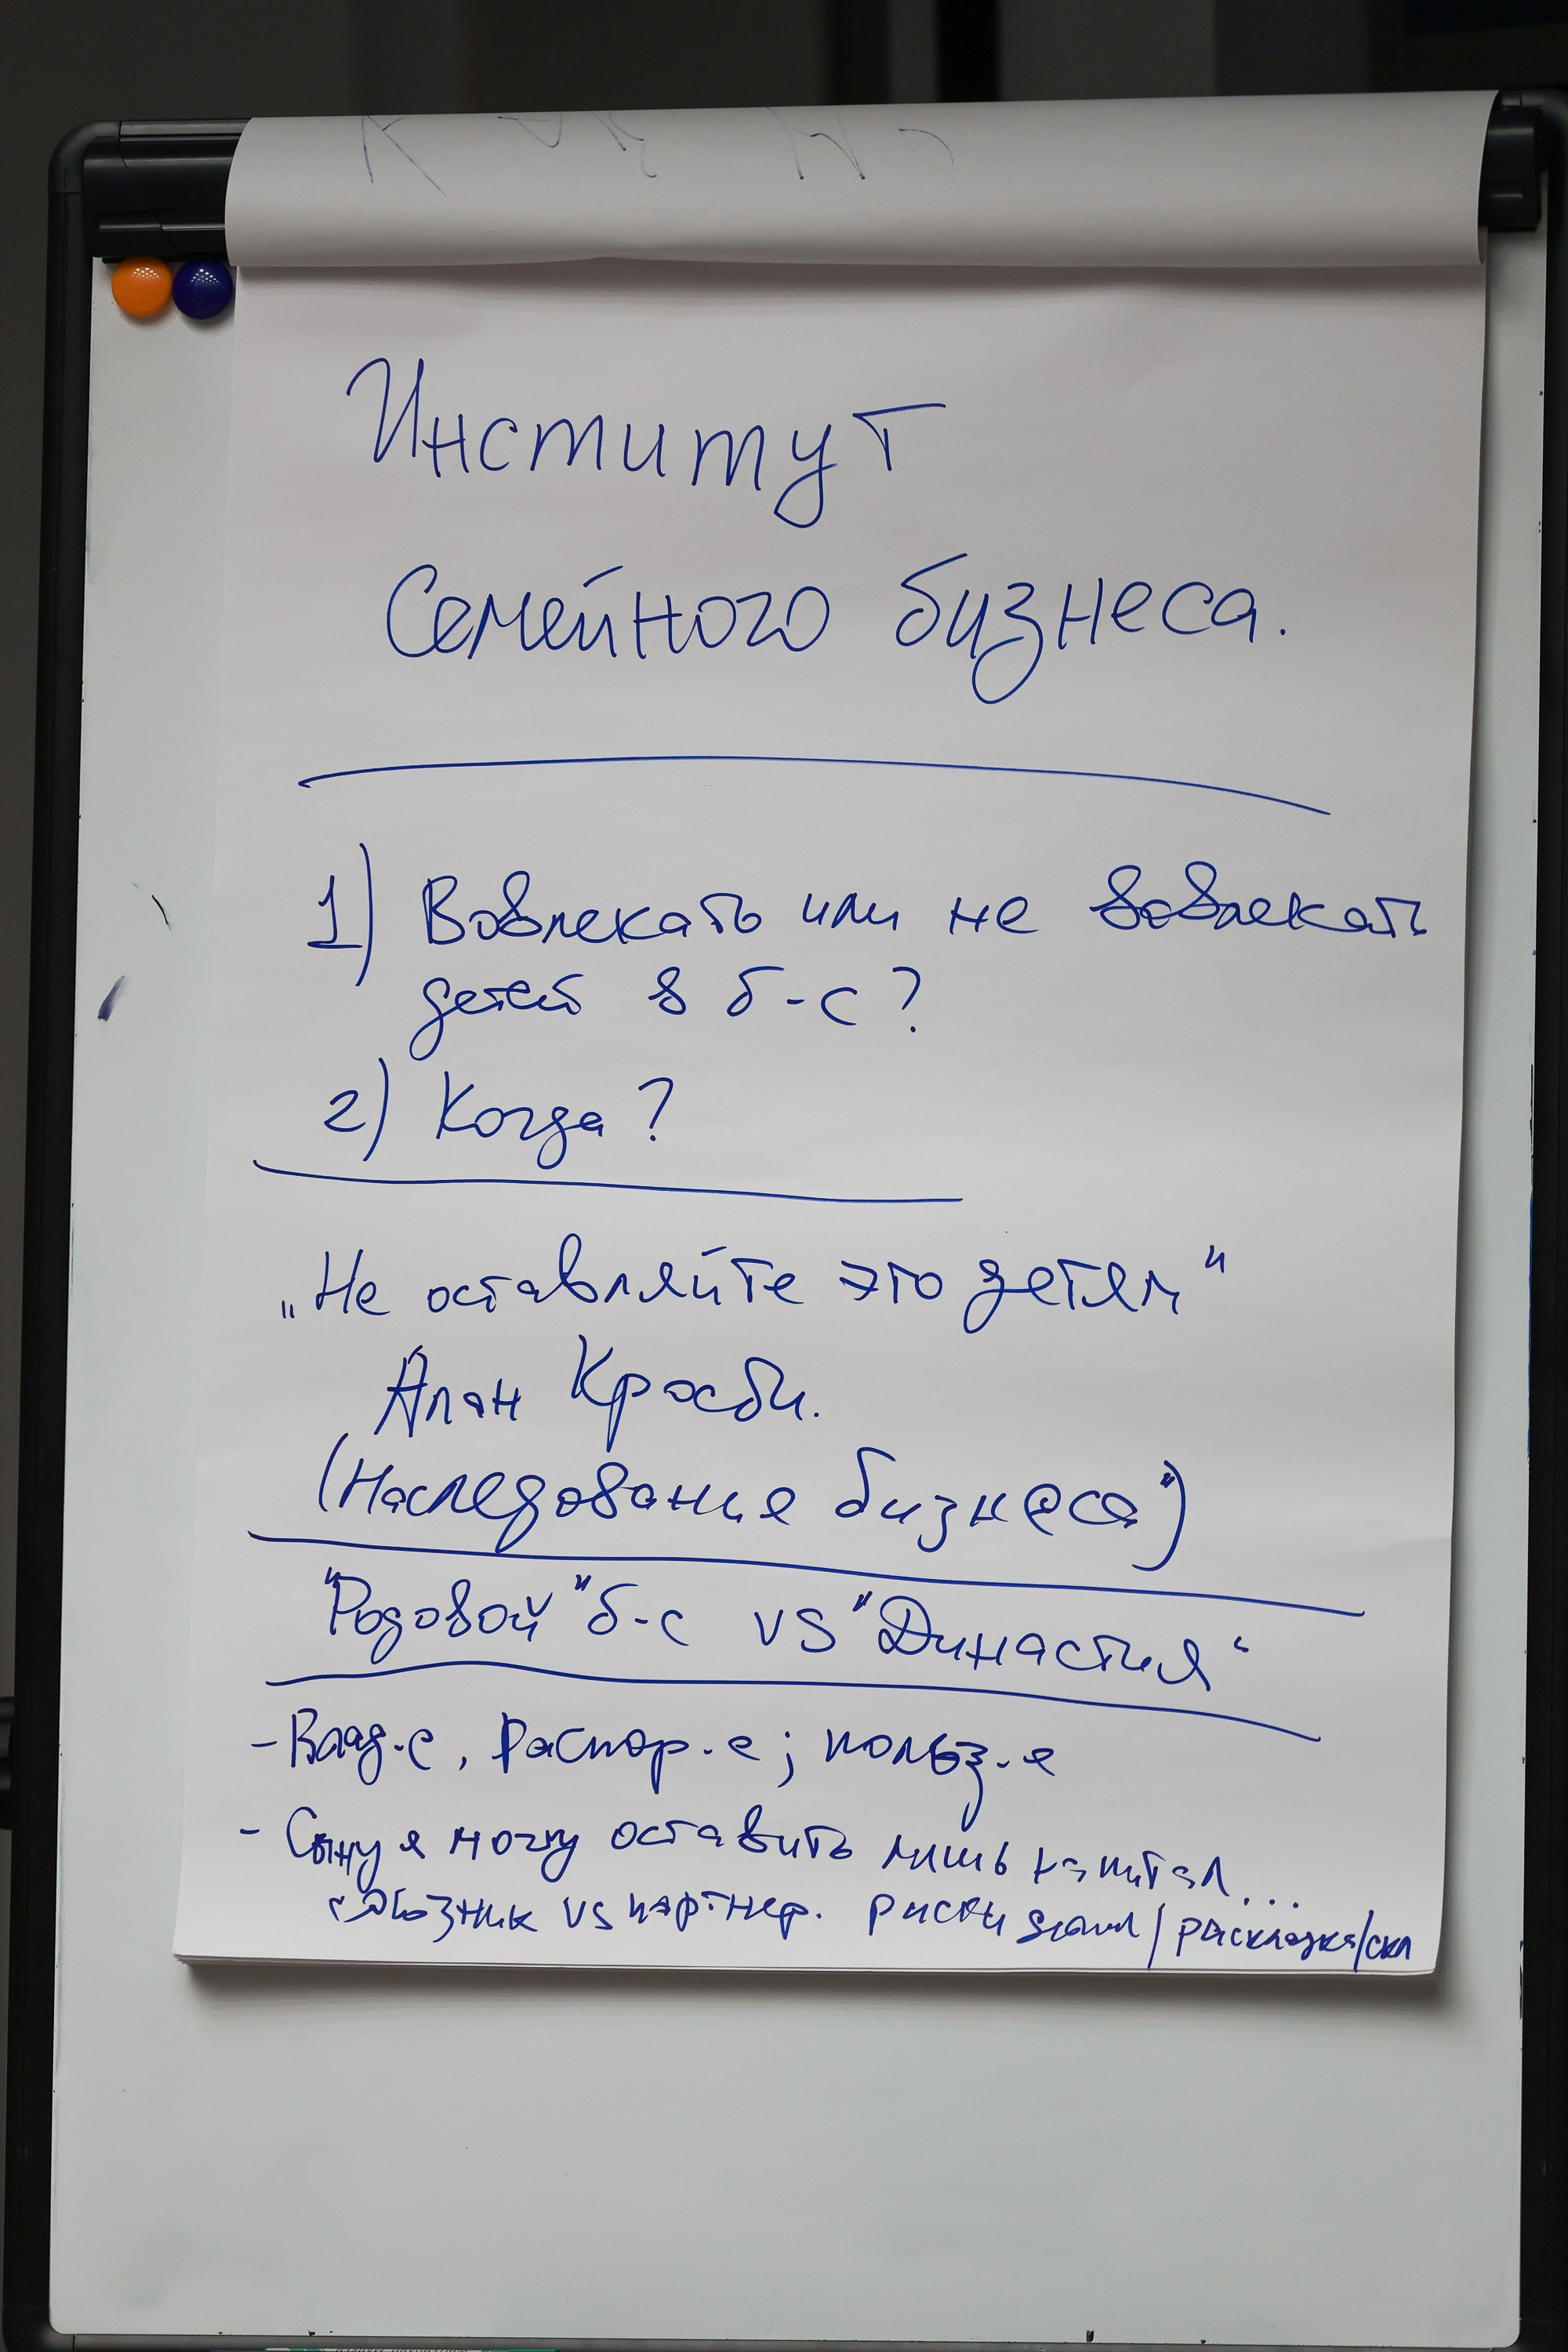 Институт
Семейного бизнеса.
1) Вовлекать или не вовлекать
детей в б-с?
2) Когда?
„Не оставляйте это детям"
Алан Кросби.
(Наследование бизнеса")
"Родовой" б-с vs "Династия"
- Влад-е, Распор-е; польз-е
- Сыну я могу оставить лишь капитал...
союзник vs партнер. риски / раскладка/скл